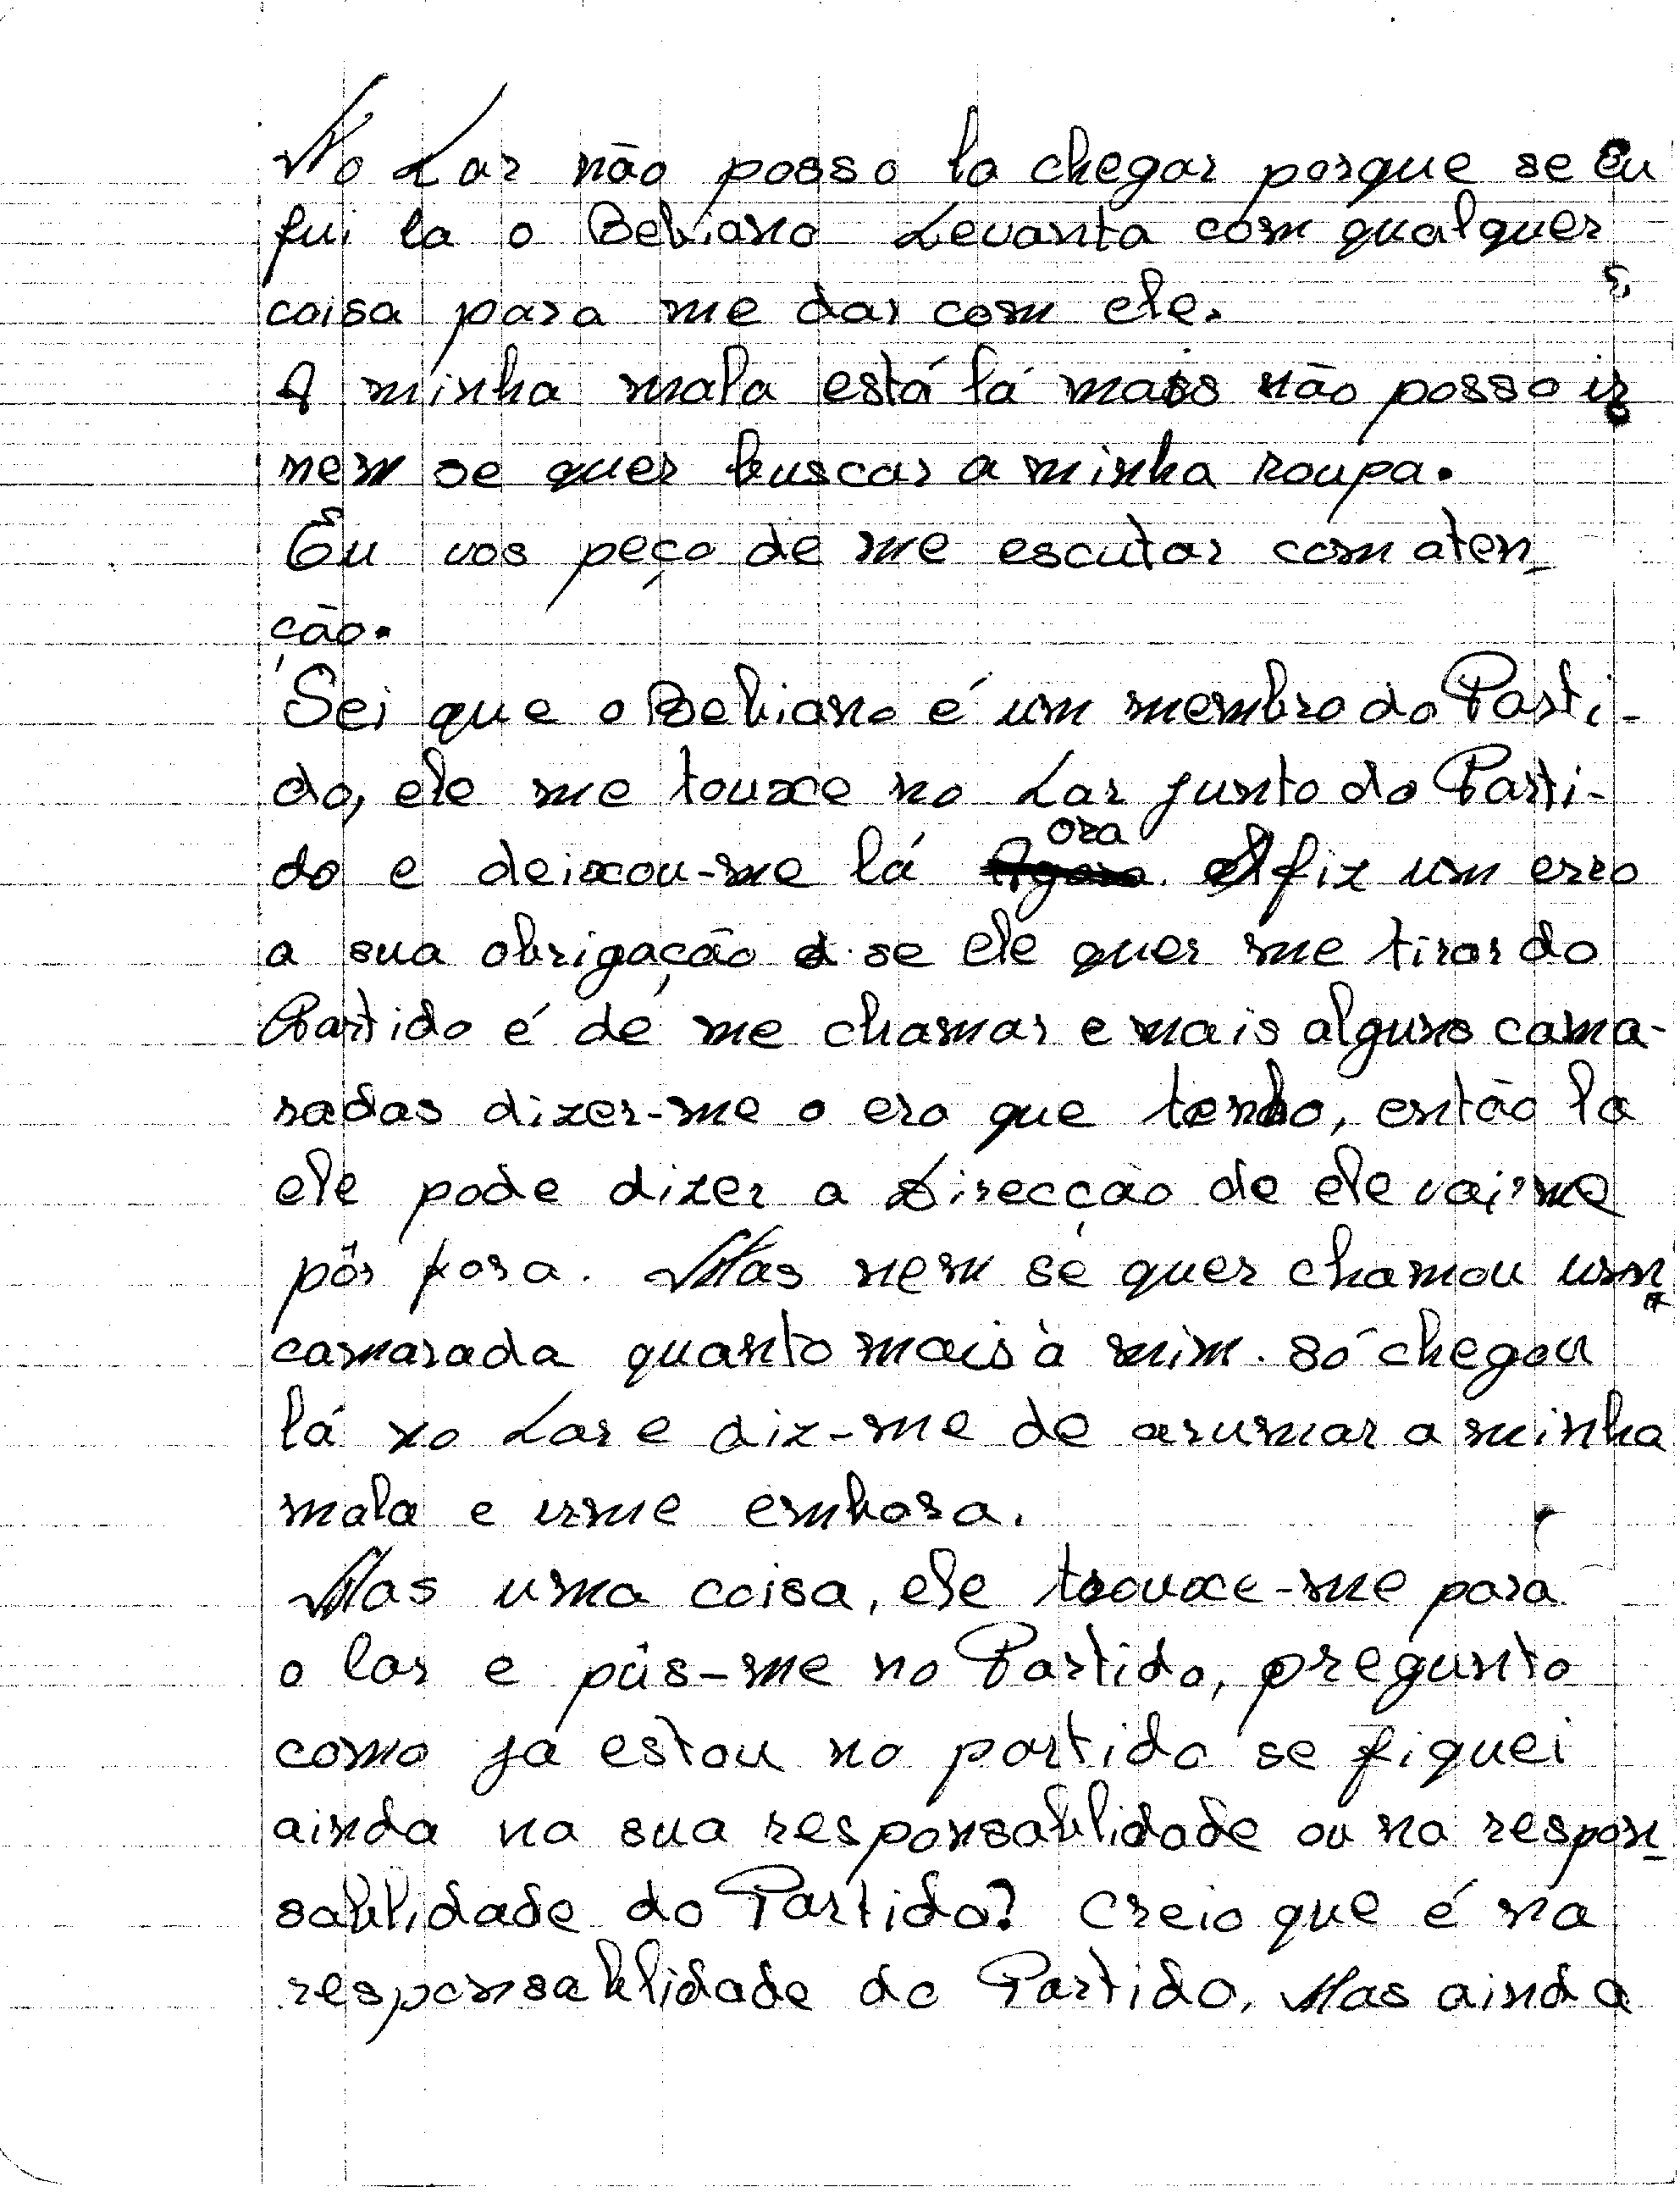 No Lar não posso la chegar porque se eu
fui la o Bebiano Levanta com qualquer
coisa para me dar com ele.
A minha mala está lá mais não posso ir
nem se quer buscar a minha roupa.
Eu vos peço de me escutar com aten-
ção.
Sei que o Bebiano é um membro do Parti-
do, ele me touxe no Lar junto do Parti-
do e deixou-me lá ora
Agora. fiz um erro
a sua obrigação se ele quer me tirar do
Partido é de me chamar e mais alguns cama-
radas dizer-me o ero que tenho, então la
ele pode dizer a Direcção de ele vai me
pôr fora. Mas nem se quer chamou um
camarada quanto mais à mim. só chegou
lá no Lar e diz-me de arumar a minha
mala e irme embora.
Mas uma coisa, ele trouxe-me para
o lar e pús-me no Partido, pregunto
como já estou no partido se fiquei
ainda na sua responsablidade ou na respon-
sablidade do Partido? Creio que é na
responsablidade do Partido. Mas ainda